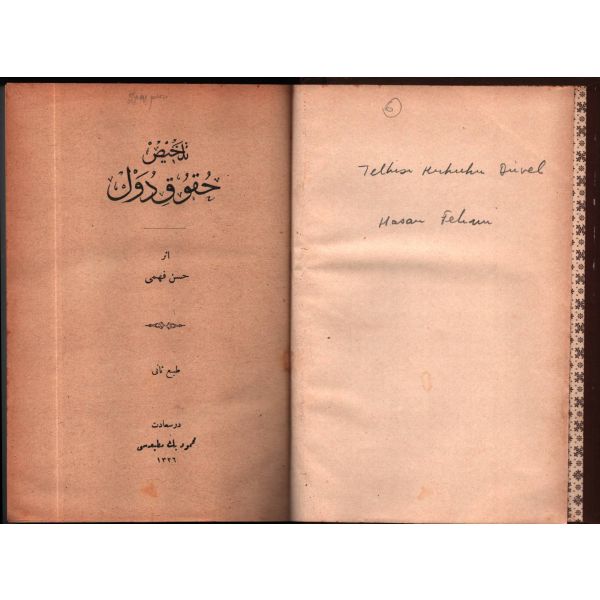 تلخيص
حقوق دول
اثر
حسن فهمى
طبع ثانى
درسعادت
محمود بك مطبعه‌سى
١٣٢٦
6
Telhisi Hukuku Düvel
Hasan Fehmi